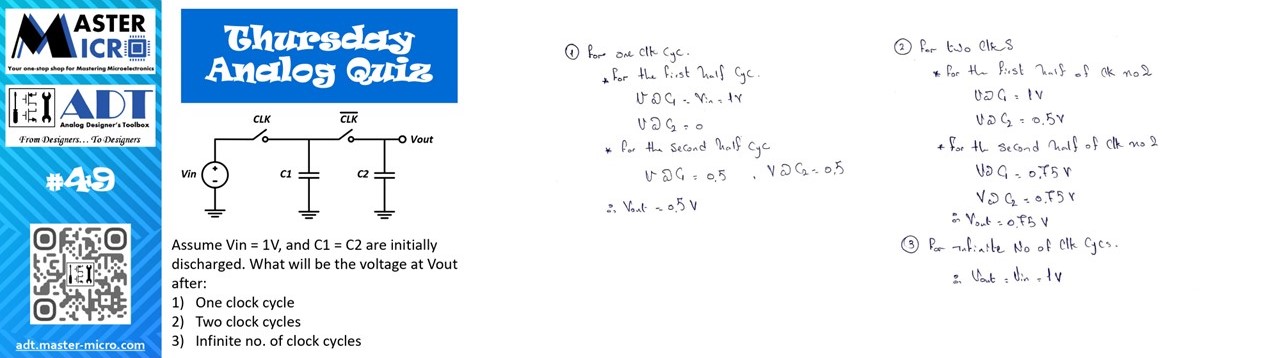 MASTER
MICRO
Your one-stop shop for Mastering Microelectronics
ADT
Analog Designer's Toolbox
From Designers... To Designers
#49
adt.master-micro.com
Thursday
Analog Quiz
CLK
CLK
Vout
Vin
C1
C2
Assume Vin = 1V, and C1 = C2 are initially
discharged. What will be the voltage at Vout
after:
1) One clock cycle
2) Two clock cycles
3) Infinite no. of clock cycles
① For one clk cyc.
* For the first half cyc.
V@C1 = Vin = 1V
V@C2 = 0
* for the second half cyc
V@C1 = 0.5 , V@C2 = 0.5
∴ Vout = 0.5 V
② For two clks
* for the first half of clk no 2
V@C1 = 1V
V@C2 = 0.5V
* for the second half of clk no 2
V@C1 = 0.75 V
V@C2 = 0.75 V
∴ Vout = 0.75 V
③ For infinite No of clk cycs.
∴ Vout = Vin = 1V